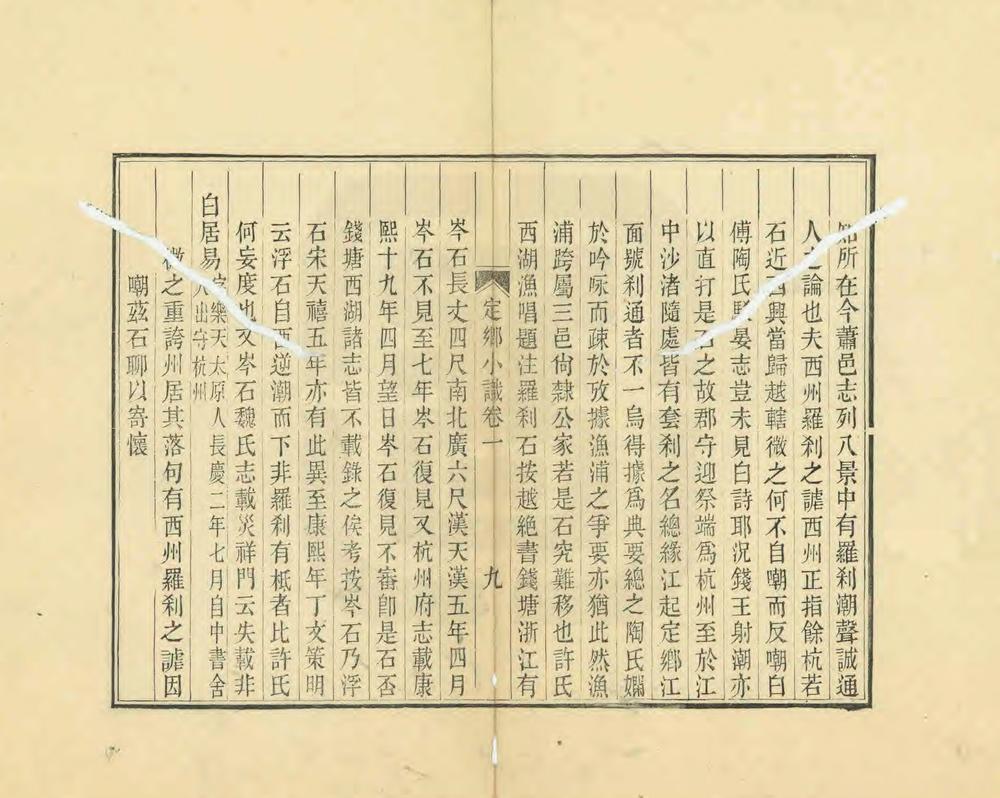 所在今蕭邑志列八景中有羅刹潮聲誠通
人之論也夫西州羅刹之謔西州正指餘杭若
石近西興當歸越轄微之何不自嘲而反嘲白
傅陶氏晏志豈未見白詩耶況錢王射潮亦
以直打是石之故郡守迎祭端爲杭州至於江
中沙渚隨處皆有套刹之名總緣江起定鄉江
面號刹通者不一烏得據爲典要總之陶氏嫻
於吟咏而疎於攷據漁浦之爭要亦猶此然漁
浦跨屬三邑尙隸公家若是石究難移也許氏
西湖漁唱題注羅刹石按越絶書錢塘浙江有
定鄉小識卷一
九
岑石長丈四尺南北廣六尺漢天漢五年四月
岑石不見至七年岑石復見又杭州府志載康
熙十九年四月望日岑石復見不審卽是石否
錢塘西湖諸志皆不載錄之俟考按岑石乃浮
石宋天禧五年亦有此異至康熙年丁文策明
云浮石自西逆潮而下非羅刹有柢者比許氏
何妄度也又岑石魏氏志載災祥門云失載非
白居易字樂天太原人長慶二年七月自中書舍
人出守杭州
微之重誇州居其落句有西州羅刹之謔因
嘲茲石聊以寄懷